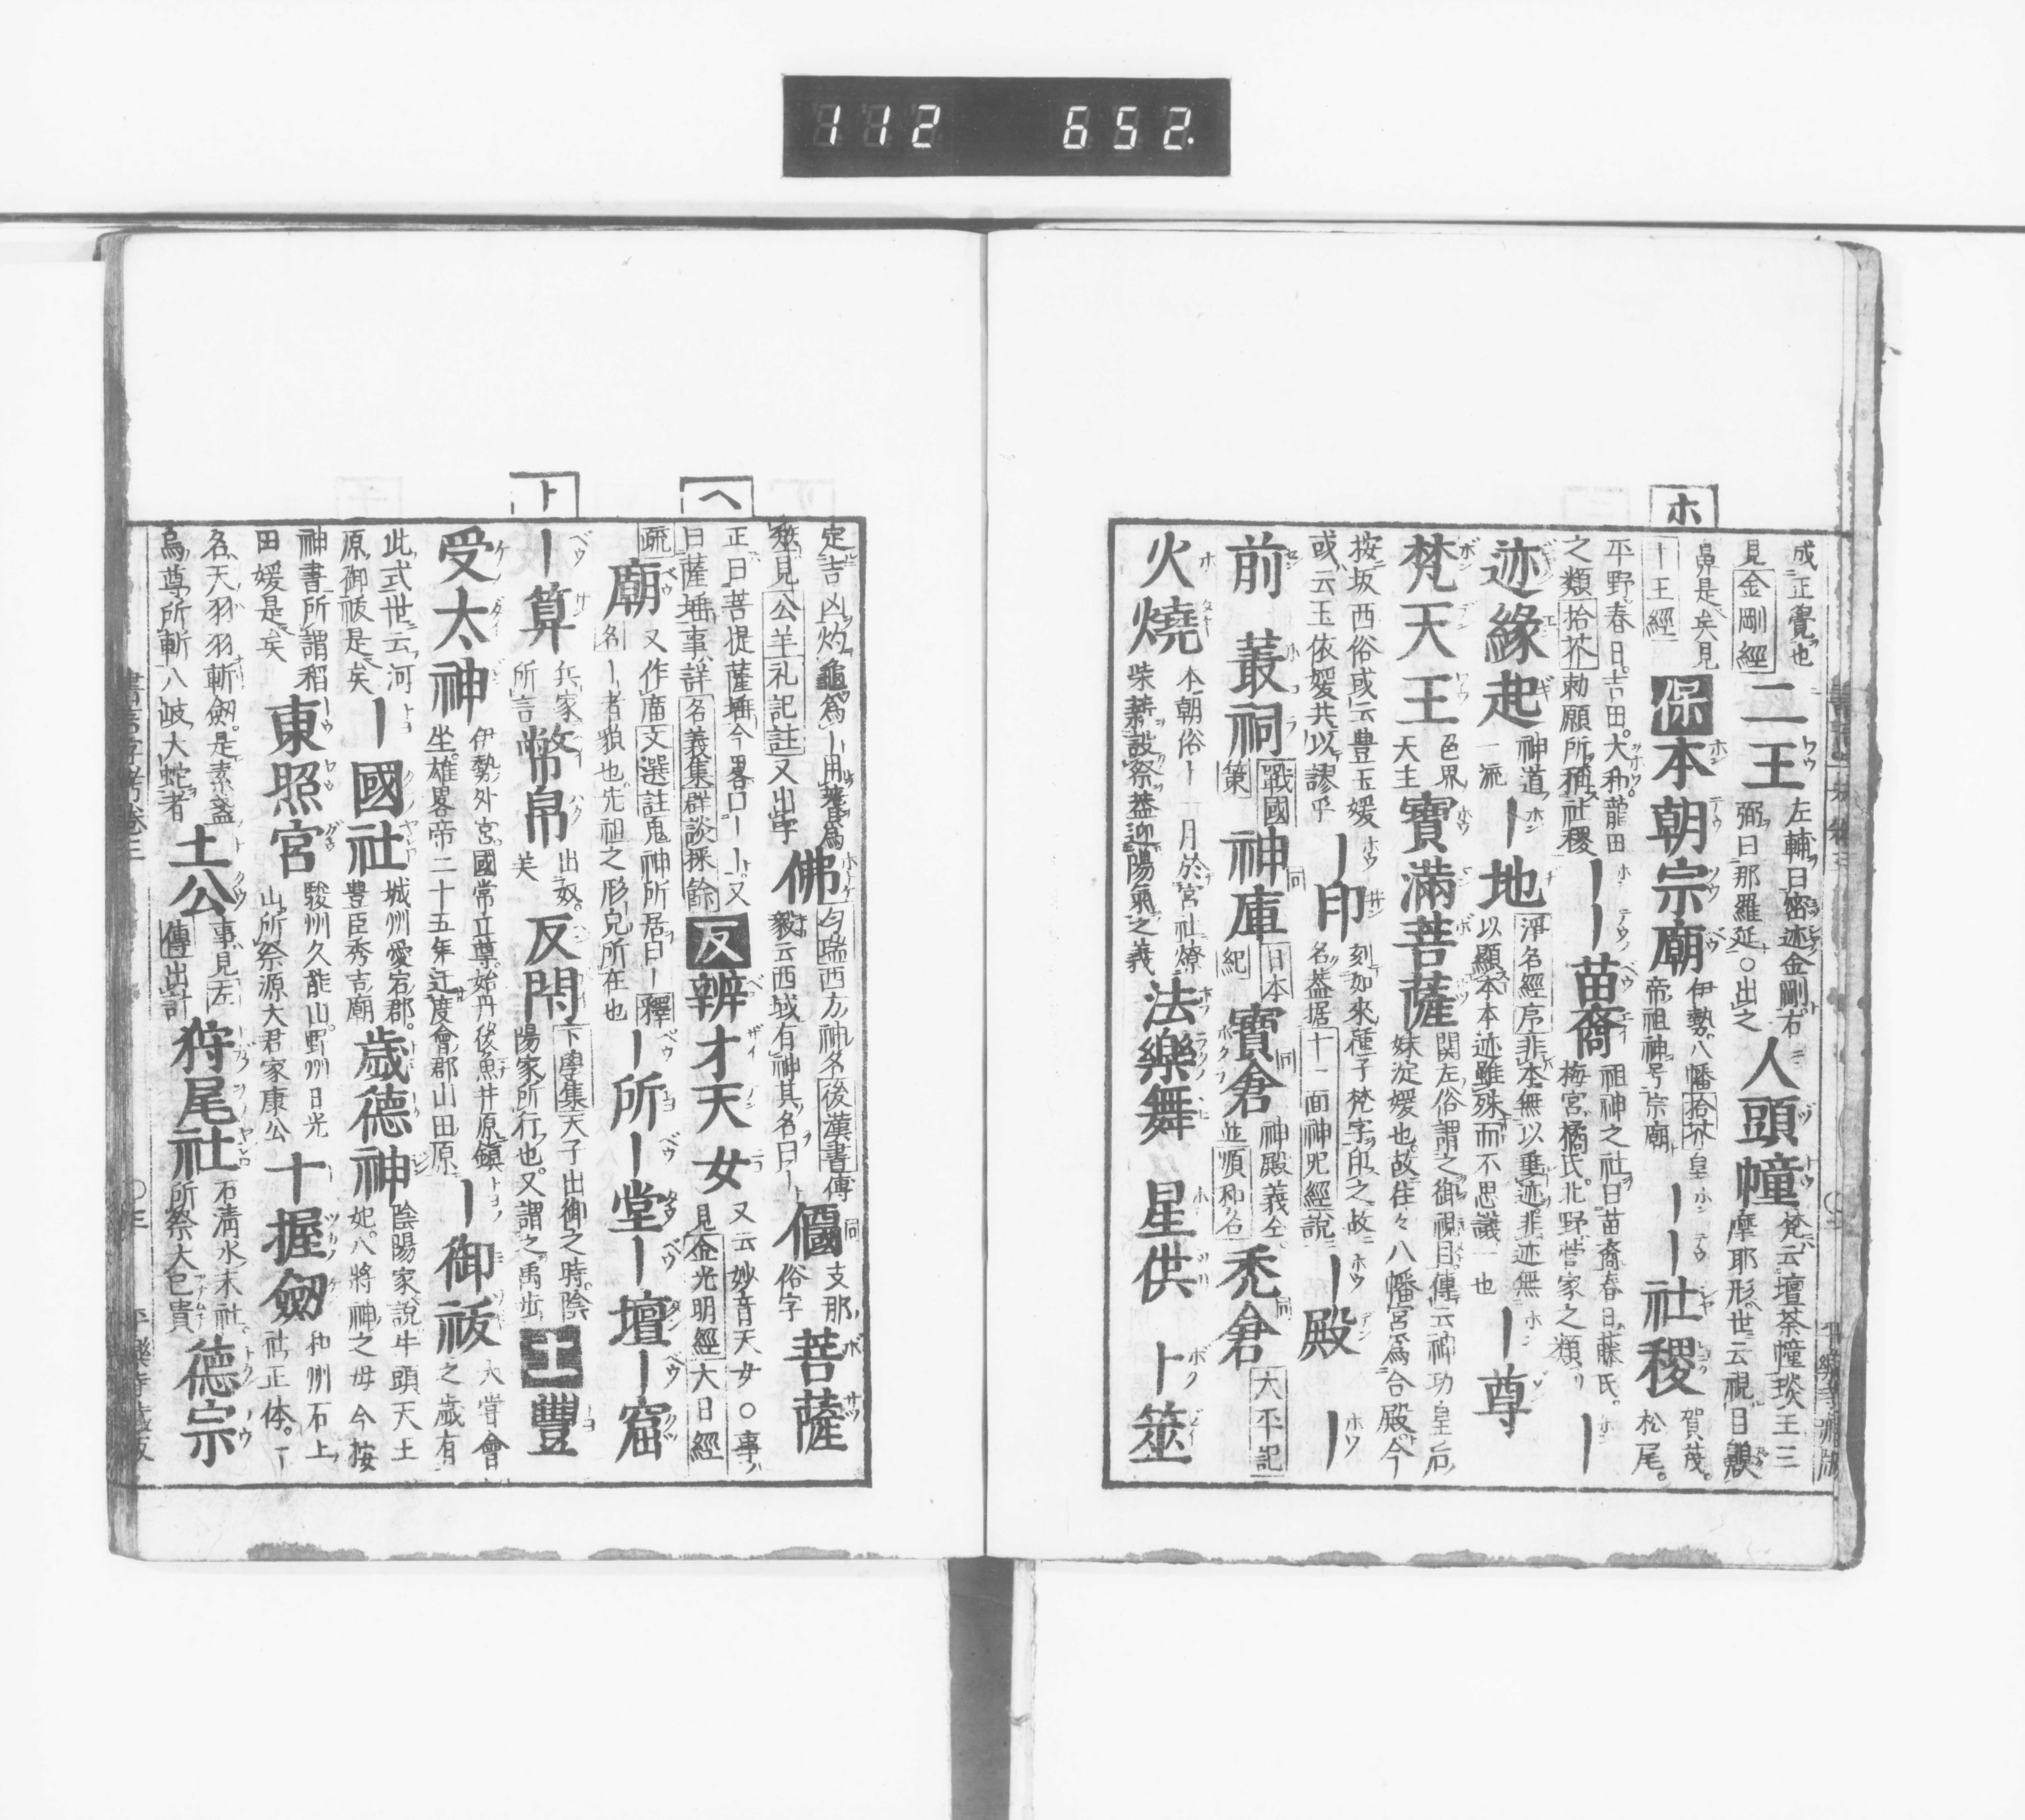 112 652.
ホ
成正覺也
見金剛經
二王
左輔曰密迹金剛右
弼曰那羅延○出之
人頭幢
梵云壇荼幢琰王三
摩耶形世云視目
鼻是矣見
十王經
保
本朝宗廟
伊勢八幡拾芥皇
帝祖神号宗廟
――社稷
賀茂
松尾
平野春日吉田大和龍田
之類拾芥勅願所稱社稷
――苗裔
祖神之社曰苗裔春日藤氏
梅宮橘氏北野菅家之類
―
迹緣起
神道
一流
―地
淨名經序非本無以垂迹非迹無
以顯本本迹雖殊而不思議一也
―尊
梵天王
色界
天主
寶滿菩薩
関左俗謂之御視目傳云神功皇后
妹淀媛也故往々八幡宮爲合殿今
按坂西俗或云豊玉媛
或云玉依媛共以謬乎
―印
刻如來種子梵字印之故
名蓋据十一面神呪經說
―殿
―
前
叢祠
戰國
策
神庫
日本
紀
寶倉
神殿義仝
並順和名
禿倉
太平記
火燒
本朝俗―一月於宮社燎
柴薪設祭蓋迎陽氣之義
法樂舞
星供
卜筮
定吉凶灼龜爲―用蓍爲
筮見公羊礼記註又出
佛
匀瑞西方神名後漢書傳
毅云西域有神其名曰―
俗字
支那
菩薩
正曰菩提薩埵今畧曰――又
曰薩埵事詳名義集群談採餘
ヘ
反
辨才天女
又云妙音天女○事
見金光明經大日經
疏
廟
又作庿文選註鬼神所居曰―釋
名―者貌也先祖之形皃所在也
―所
―堂
―壇
―窟
―算
兵家
所言
幣帛
出奴
美
反閇
下學集天子出御之時陰
陽家所行也又謂之禹步
ト
土
豐
受太神
伊勢外宮國常立尊始丹後魚井原鎮
坐雄畧帝二十五年迁度會郡山田原
―御祓
大甞會
之歲有
此式世云河
原御祓是矣
―國社
城州愛宕郡
豊臣秀吉廟
歲德神
陰陽家說牛頭天王
妃八將神之母今按
神書所謂稻
田媛是矣
東照宮
駿州久能山野州日光
山所祭源大君家康公
十握劒
和州石上
社正体一
名天羽羽斬劒是素盞
烏尊所斬八岐大蛇者
土公
事見左
傳出計
狩尾社
石清水末社
所祭大己貴
德宗
書言字考卷三
○三